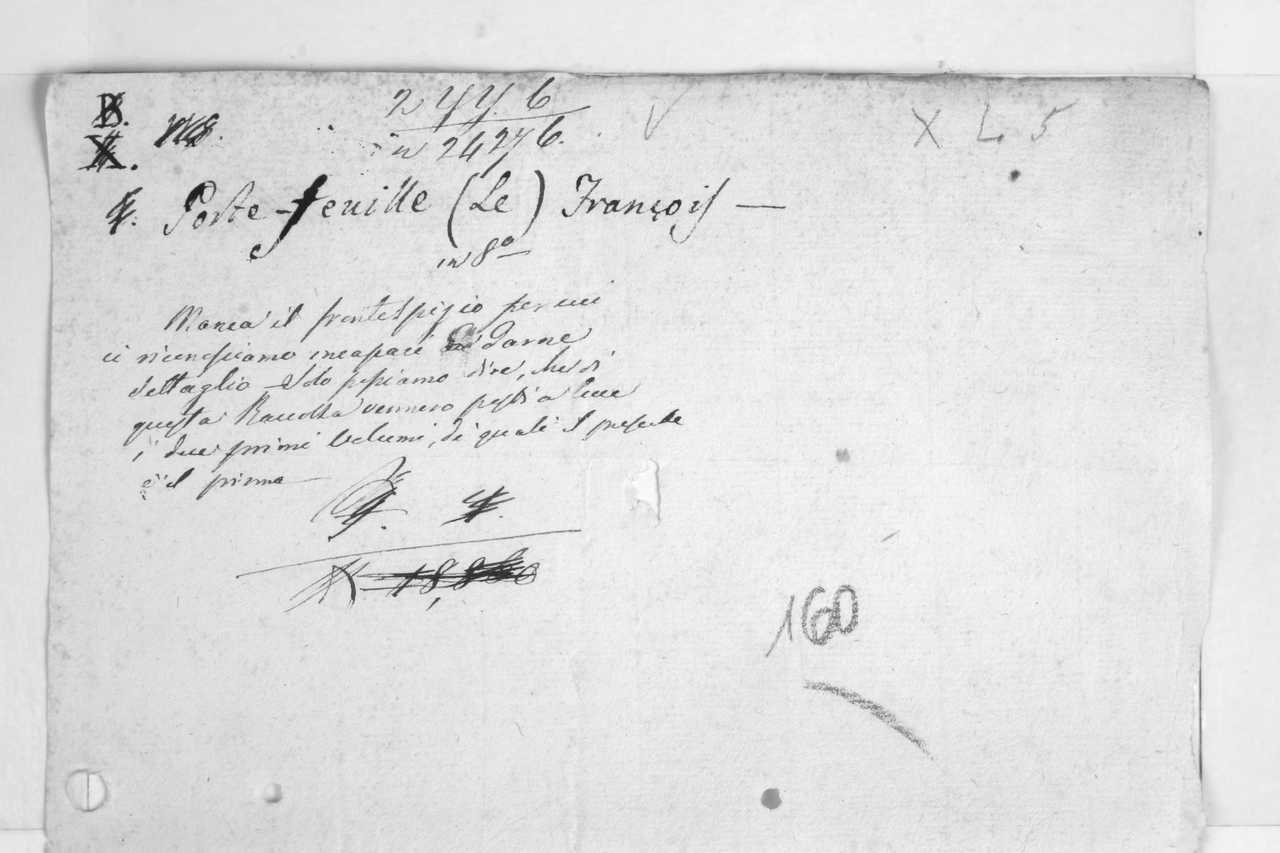 2776
n 24276.
V
X L 5
Porte-feuille (Le) François —
in 8º —
Manca il frontespizio per cui
ci riconosciamo incapaci darne
dettaglio — Solo possiamo dire, che di
questa Raccolta vennero posti a luce
i due primi Volumi, di quali il presente
è il primo —
160